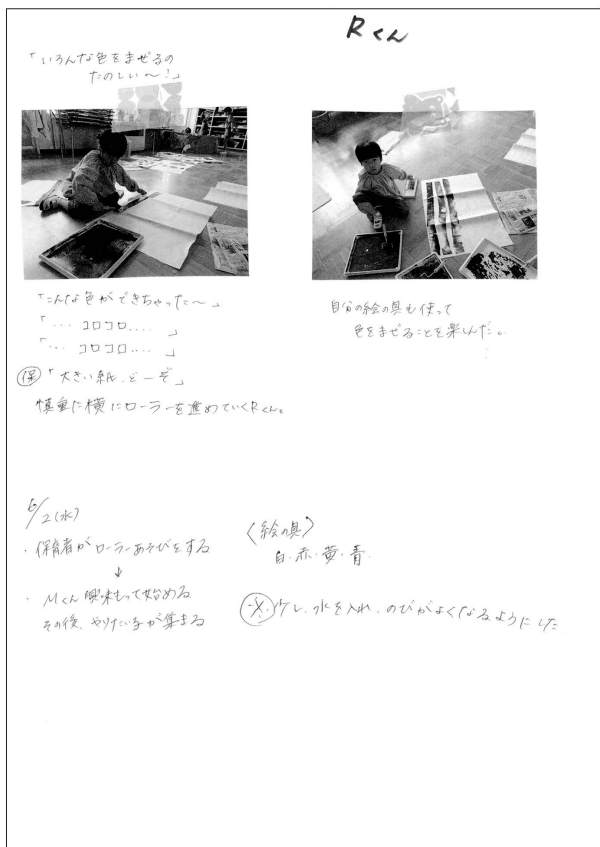 Rくん
「いろんな色をまぜるの
たのしい〜!」
「こんな色ができちゃった〜」
「... コロコロ....」
「... コロコロ....」
㋭「大きい紙、どーぞ」
慎重に横にローラーを進めていくRくん。
自分の絵の具も使って
色をまぜることを楽しんだ。
6/2(水)
・保育者がローラーあそびをする
↓
・Mくん興味もって始める
その後、やりたい子が集まる
〈絵の具〉
白・赤・黄・青
少し、水を入れ、のびがよくなるようにした